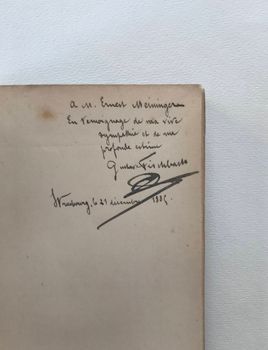 A M. Ernest Meininger
En témoignage de ma vive
sympathie et de ma
profonde estime
Gustave Fischbach
Strasbourg, le 21 décembre